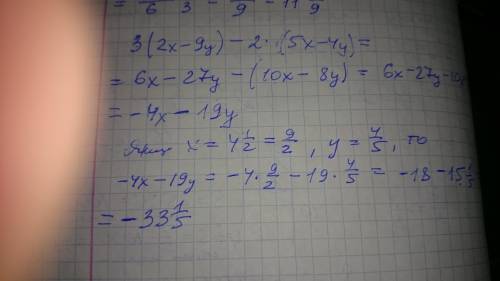 = 6 3 - 9 - 11 9
3(2x-9y) - 2·(5x-4y) =
= 6x - 27y - (10x - 8y) = 6x - 27y - 10x
= -4x - 19y
Якщо x = 4 1/2 = 9/2, y = 4/5, то
-4x - 19y = -4·9/2 - 19·4/5 = -18 - 15 1/5
= -33 1/5